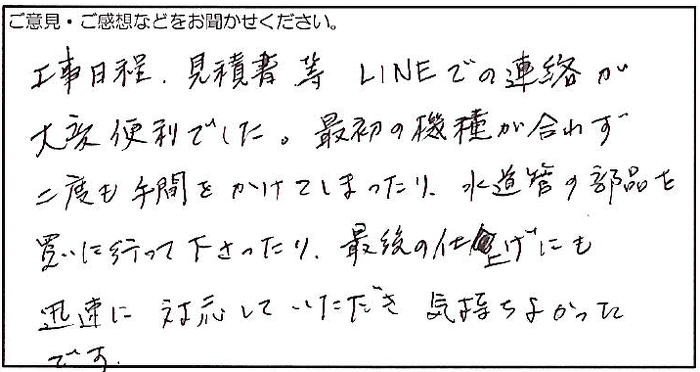 ご意見・ご感想などをお聞かせください。
工事日程、見積書等 LINEでの連絡が
大変便利でした。最初の機種が合わず
二度も手間をかけてしまったり、水道管の部品を
買いに行って下さったり、最後の仕上げにも
迅速に対応していただき気持ちよかった
です。